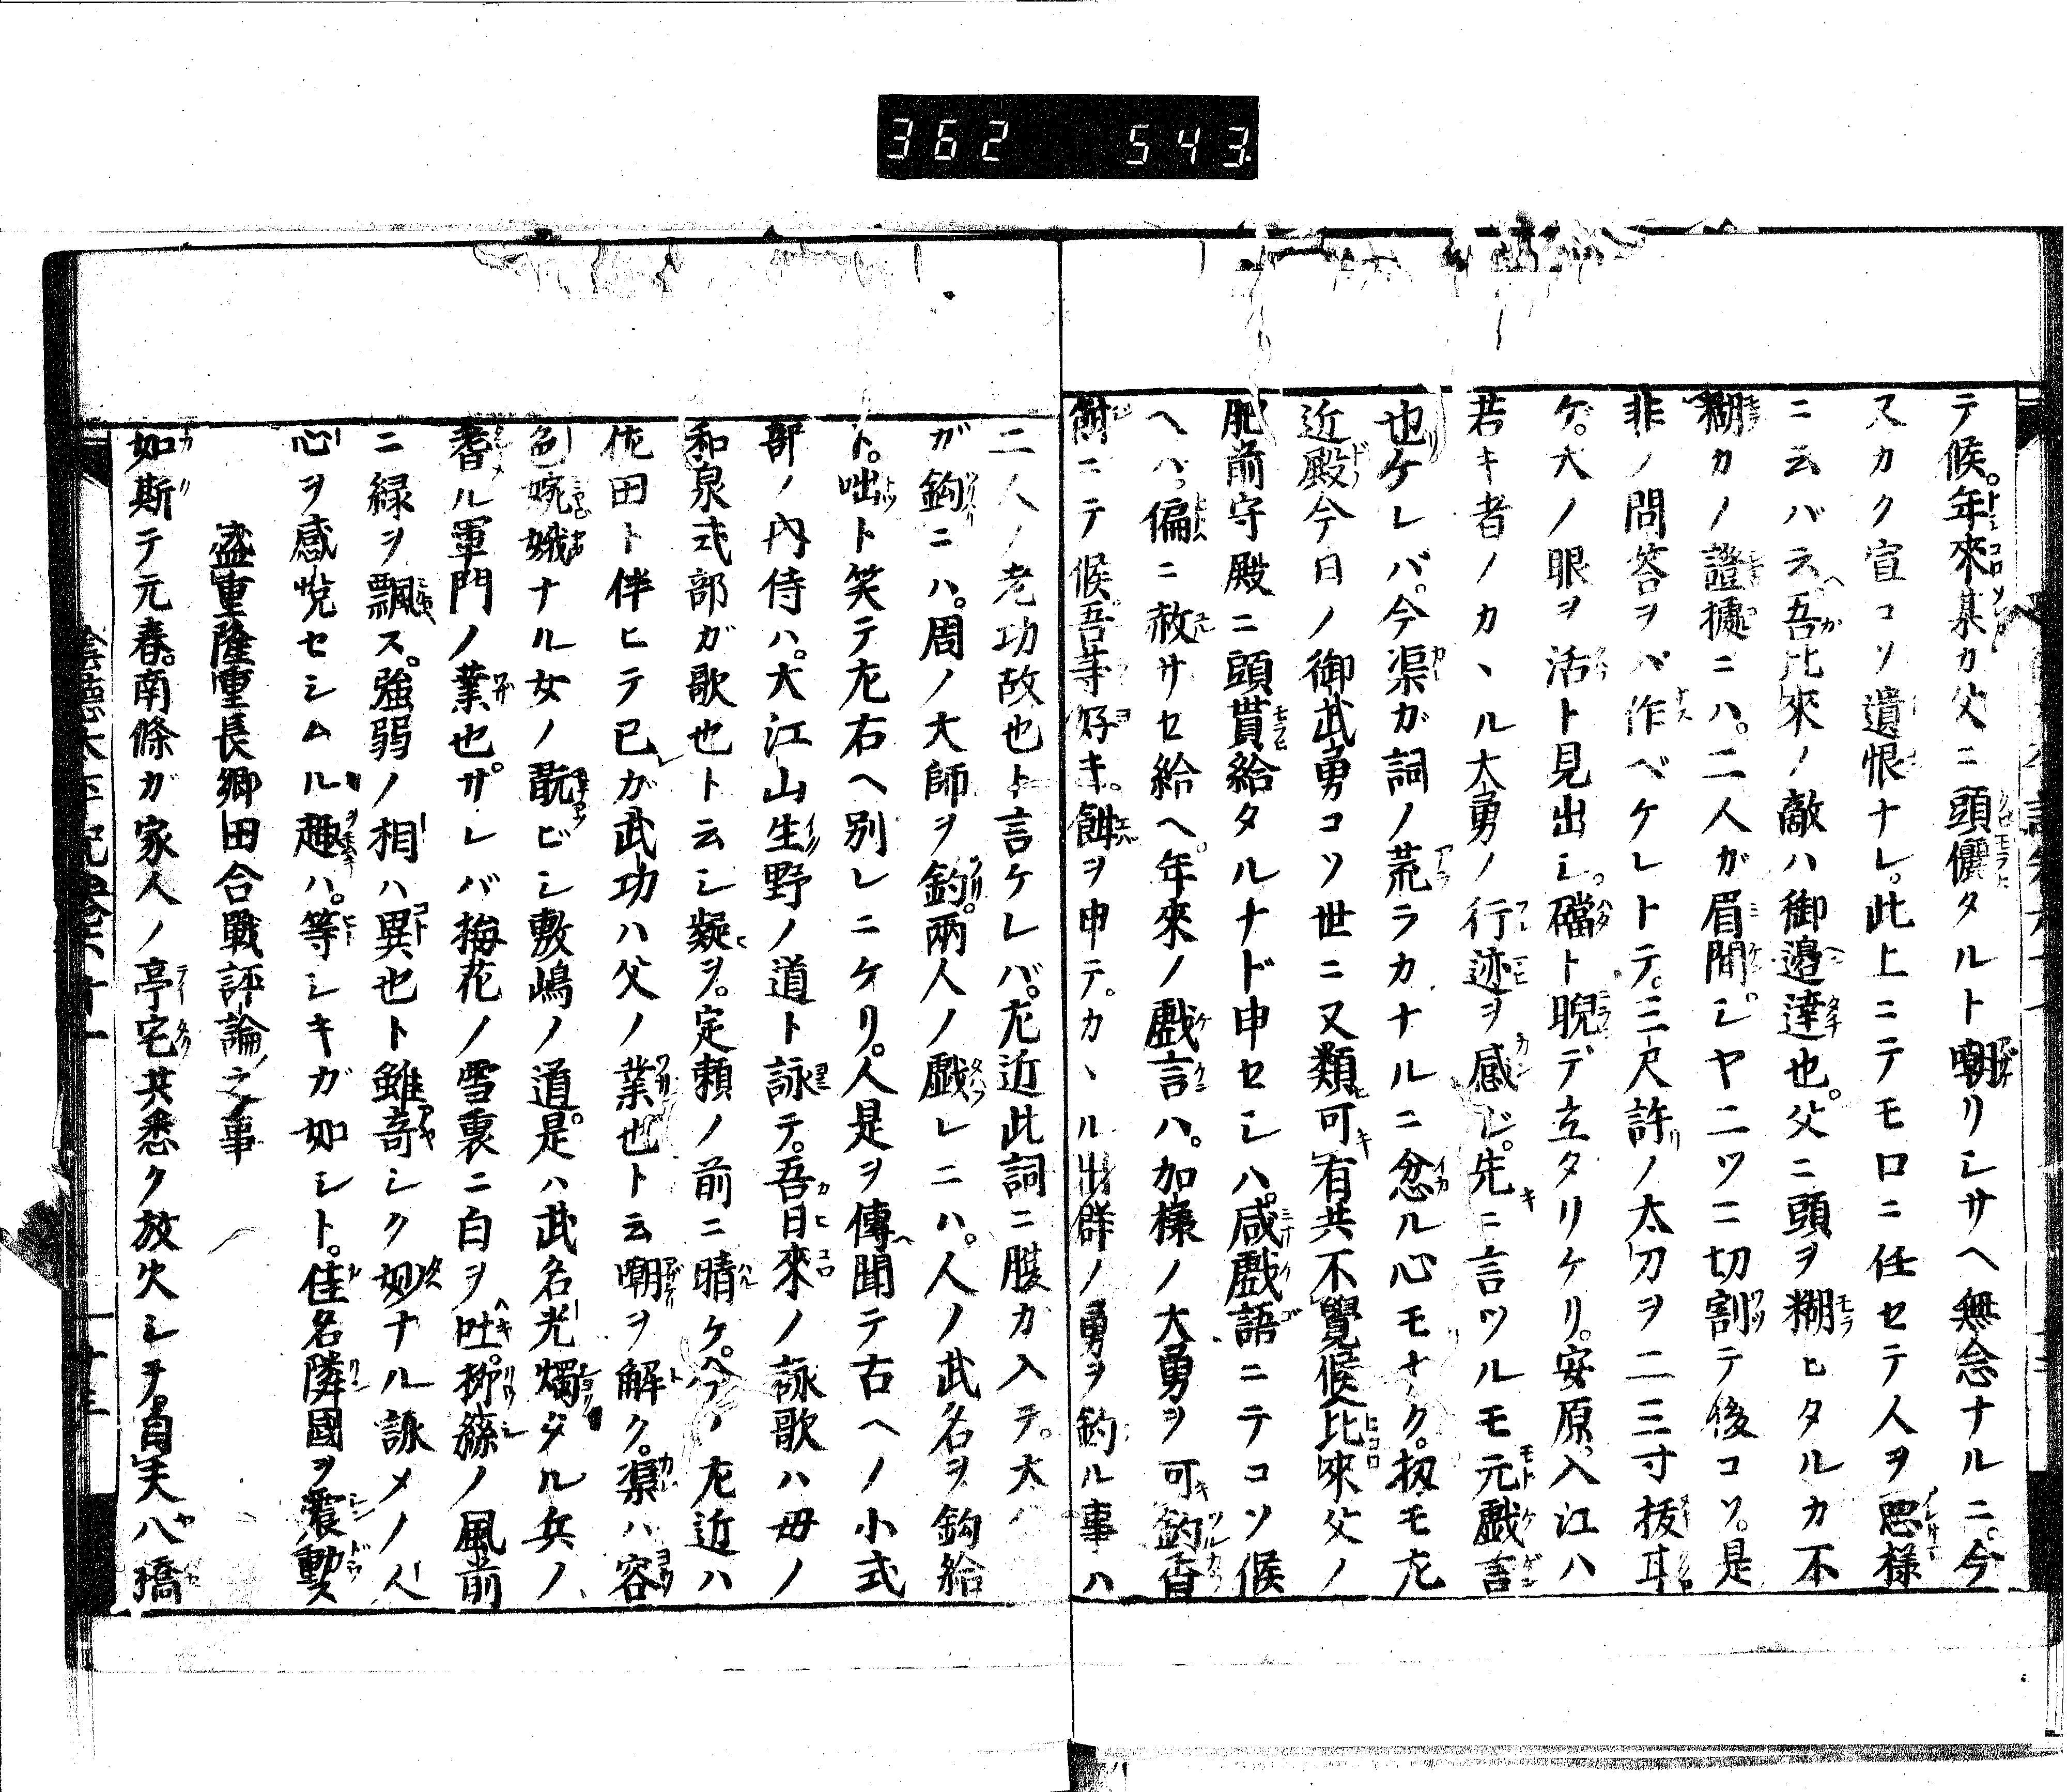 362 543
テ候。年來某カ父ニ頭儷タルト嘲リシサヘ無念ナルニ。今
又カク宣コソ遺恨ナレ。此上ニテモ口ニ任セテ人ヲ悪様
ニ云バ云ヘ。吾比來ノ敵ハ御邉達也。父ニ頭ヲ糊ヒタルカ不
糊カノ證據ニハ。二人ガ眉間シヤ二ツニ切割テ後コソ。是
非ノ問答ヲバ作ベケレトテ。三尺許ノ太刀ヲ二三寸抜
ケ。大ノ眼ヲ活ト見出シ。礑ト睨デ立タリケリ。安原入江ハ
若キ者ノカヽル太勇ノ行迹ヲ感ジ。先ニ言ツルモ元戲言
也ケレバ。今渠ガ詞ノ荒ラカナルニ忿ル心モナク。扨モ左
近殿今日ノ御武勇コソ世ニ又類可有共不覺候。比來父ノ
肥前守殿ニ頭貰給タルナド申セシハ。咸戲語ニテコソ候
ヘハ。偏ニ赦サセ給ヘ。年來ノ戲言ハ。加樣ノ大勇ヲ可釣
餌ニテ候。吾等好キ。餌ヲ申テ。カヽル出群ノ勇ヲ釣ル事ハ
二人ノ老功故也ト言ケレバ。左近此詞ニ腹カ入テ。太
ガ鈎ニハ。周ノ大師ヲ釣。兩人ノ戯レニハ。人ノ武名ヲ鈎給
ト。咄ト笑テ左右ヘ別レニケリ。人是ヲ傳聞テ古ヘノ小式
部ノ内侍ハ。大江山生野ノ道ト詠テ。吾日來ノ詠歌ハ毋ノ
和泉式部ガ歌也ト云シ疑ヲ。定頼ノ前ニ晴ケ。今ノ左近ハ
佐田ト伴ヒテ已ガ武功ハ父ノ業也ト云嘲ヲ解ク。渠ハ容
色婉娥ナル女ノ翫ビシ敷嶋ノ道。是ハ武名光燭タル兵ノ
嗜ル軍門ノ業也。サレバ梅花ノ雪裏ニ白ヲ吐。栁絲ノ風前
ニ緑ヲ飄ス。強弱ノ相ハ異也ト雖。竒シク妙ナル詠メノ人
心ヲ感悅セシムル趣ハ。等シキガ如シト。佳名隣國ヲ震動ス
盛重隆重長郷田合戰評論之事
如斯テ元春。南條ガ家人ノ亭宅共悉ク放火シテ。自夫八橋
陰德太平記卷六十一